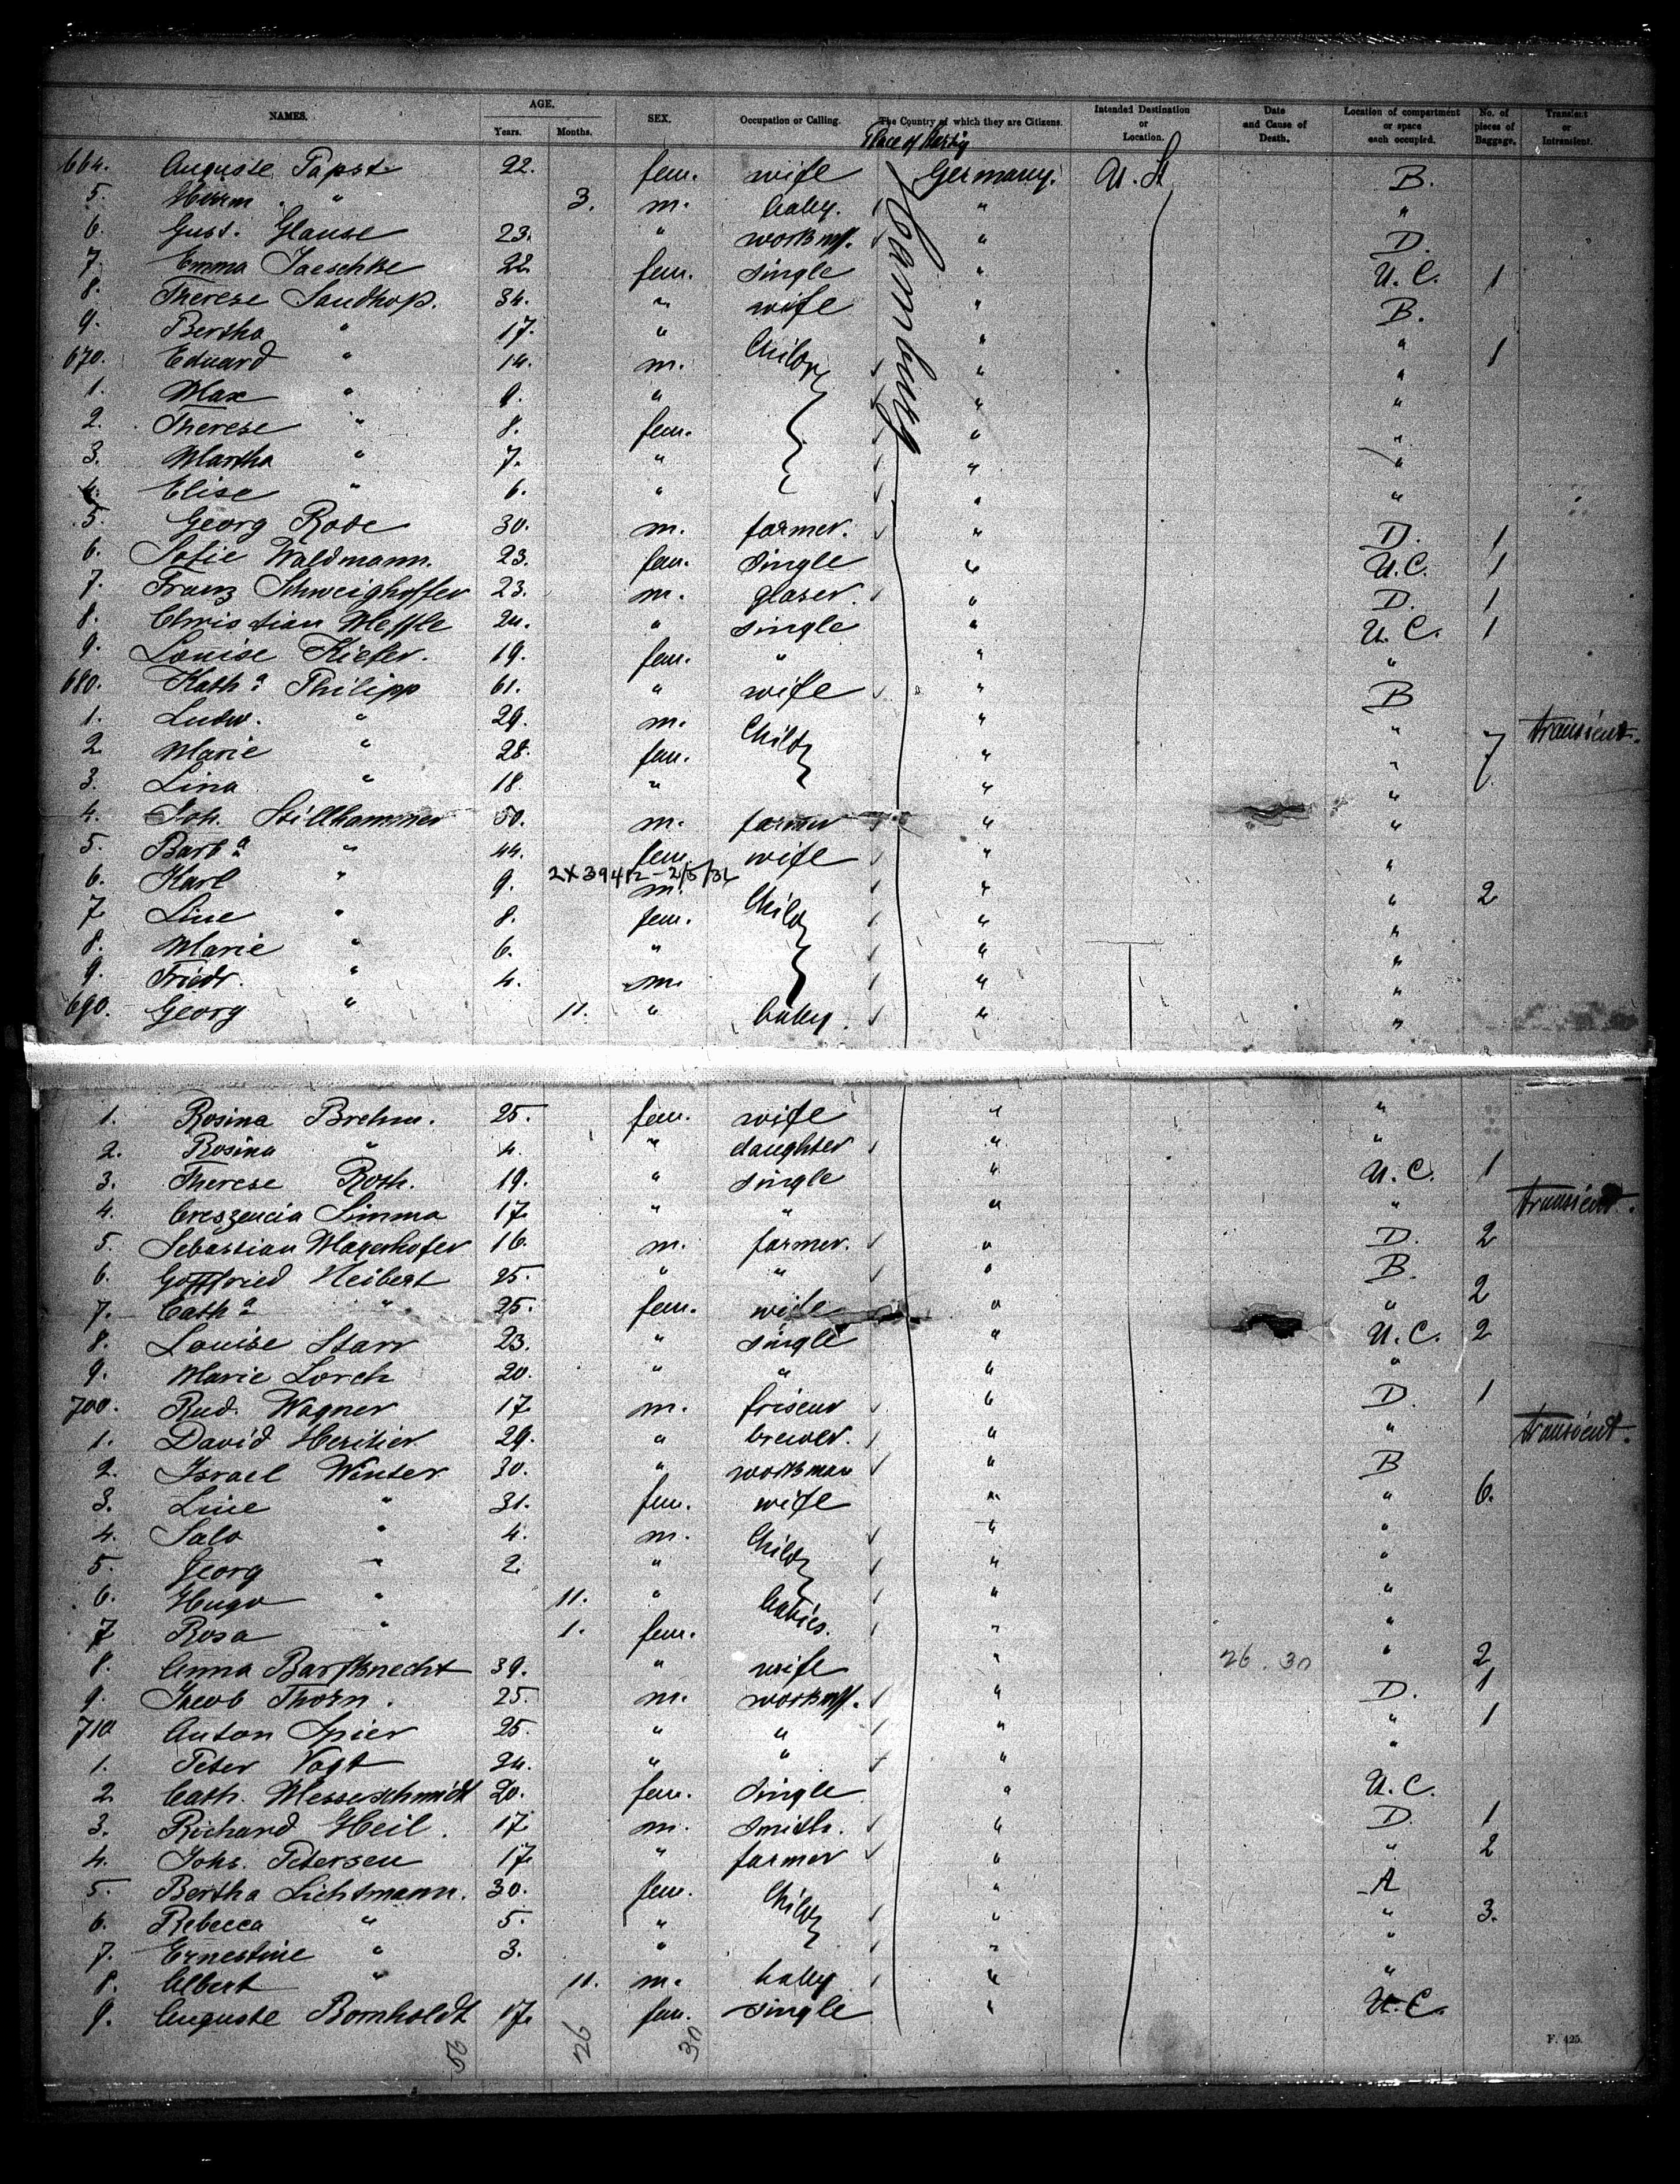 NAMES. AGE. Years. Months. SEX. Occupation or Calling. The Country of which they are Citizens. Intended Destination or Location. Date and Cause of Death. Location of compartment or space each occupied. No. of pieces of Baggage. Transient or Intransient.
Place of
Hamburg
664. Auguste Papst 22. fem. wife Germany. U. St B.
5. Herm " 3. m. baby. " "
6. Gust. Glause 23. " workm. " D.
7. Emma Jaeschke 22 fem. single " U. C. 1
8. Therese Sandhop. 34. " wife " B.
9. Bertha " 17. " " "
670. Eduard " 14. m. Child " " 1
1. Max " 9. " " "
2. Therese " 8. fem. " "
3. Martha " 7. " " "
4. Elise " 6. " " "
5. Georg Rode 30. m. farmer. " D. 1
6. Sofie Waldmann. 23. fem. single " U. C. 1
7. Franz Schweighoffer 23. m. glaser. " D. 1
8. Christian 24. " single " U. C. 1
9. Louise Kiefer. 19. fem. " " "
680. Katha Philipp 61. " wife " B
1. Ludw. " 29. m. Child " " transient.
2 Marie " 28. fem. " " 7
3. Lina " 18. " " "
4. Joh. Stillhammer 50. m. farmer " "
5. Barba " 44. fem. wife " "
2X39412-2/5/32
6. Karl " 9. m. " " 2
7 Line " 8. fem. Child " "
8. Marie " 6. " " "
9. Friedr. " 4. m. " "
690. Georg " 11. " baby. " "
1. Rosina Brehm. 25. fem. wife " "
2. Rosina " 4. " daughter " "
3. Therese Roth. 19. " single " U. C. 1
4. Creszencia Simma 17. " " " " transient.
5. Sebastian Mayerhofer 16. m. farmer. " D. 2
6. Gottfried Heibert 25. " " " B.
7. Catha " 25. fem. wife " " 2
8. Louise Starr 23. " single " U. C. 2
9. Marie Lorch 20. " " " "
700. Rud. Wagner 17 m. friseur " D. 1
1. David 29. " brewer. " " transient.
2. Israel Winter 30. " workman " B
3. Line " 31. fem. wife " " 6.
4. Salo " 4. m. Child " "
5. Georg " 2 " " "
6. Hugo " 11. " babies. " "
7 Rosa " 1. fem. " "
8. Anna Barfknecht 39. " wife " 26. 30 " 2
9. Jacob Thorn. 25. m. workm. " D. 1
710 Anton Spier 25. " " " " 1
1. Peter Vogt 24. " " " "
2 Cath. Messerschmidt 20. fem. single " U. C.
3. Richard Heil. 17. m. smith. " D. 1
4. Johs. Petersen 17. " farmer " " 2
5. Bertha Lichtmann. 30. fem. " A
6. Rebecca " 5. " Child " " 3.
7. Ernestine " 3. " " "
8. Albert " 11. m. baby " "
9. Auguste Bornholdt 17. fem. single " U. C.
56 26 30
F. 425.